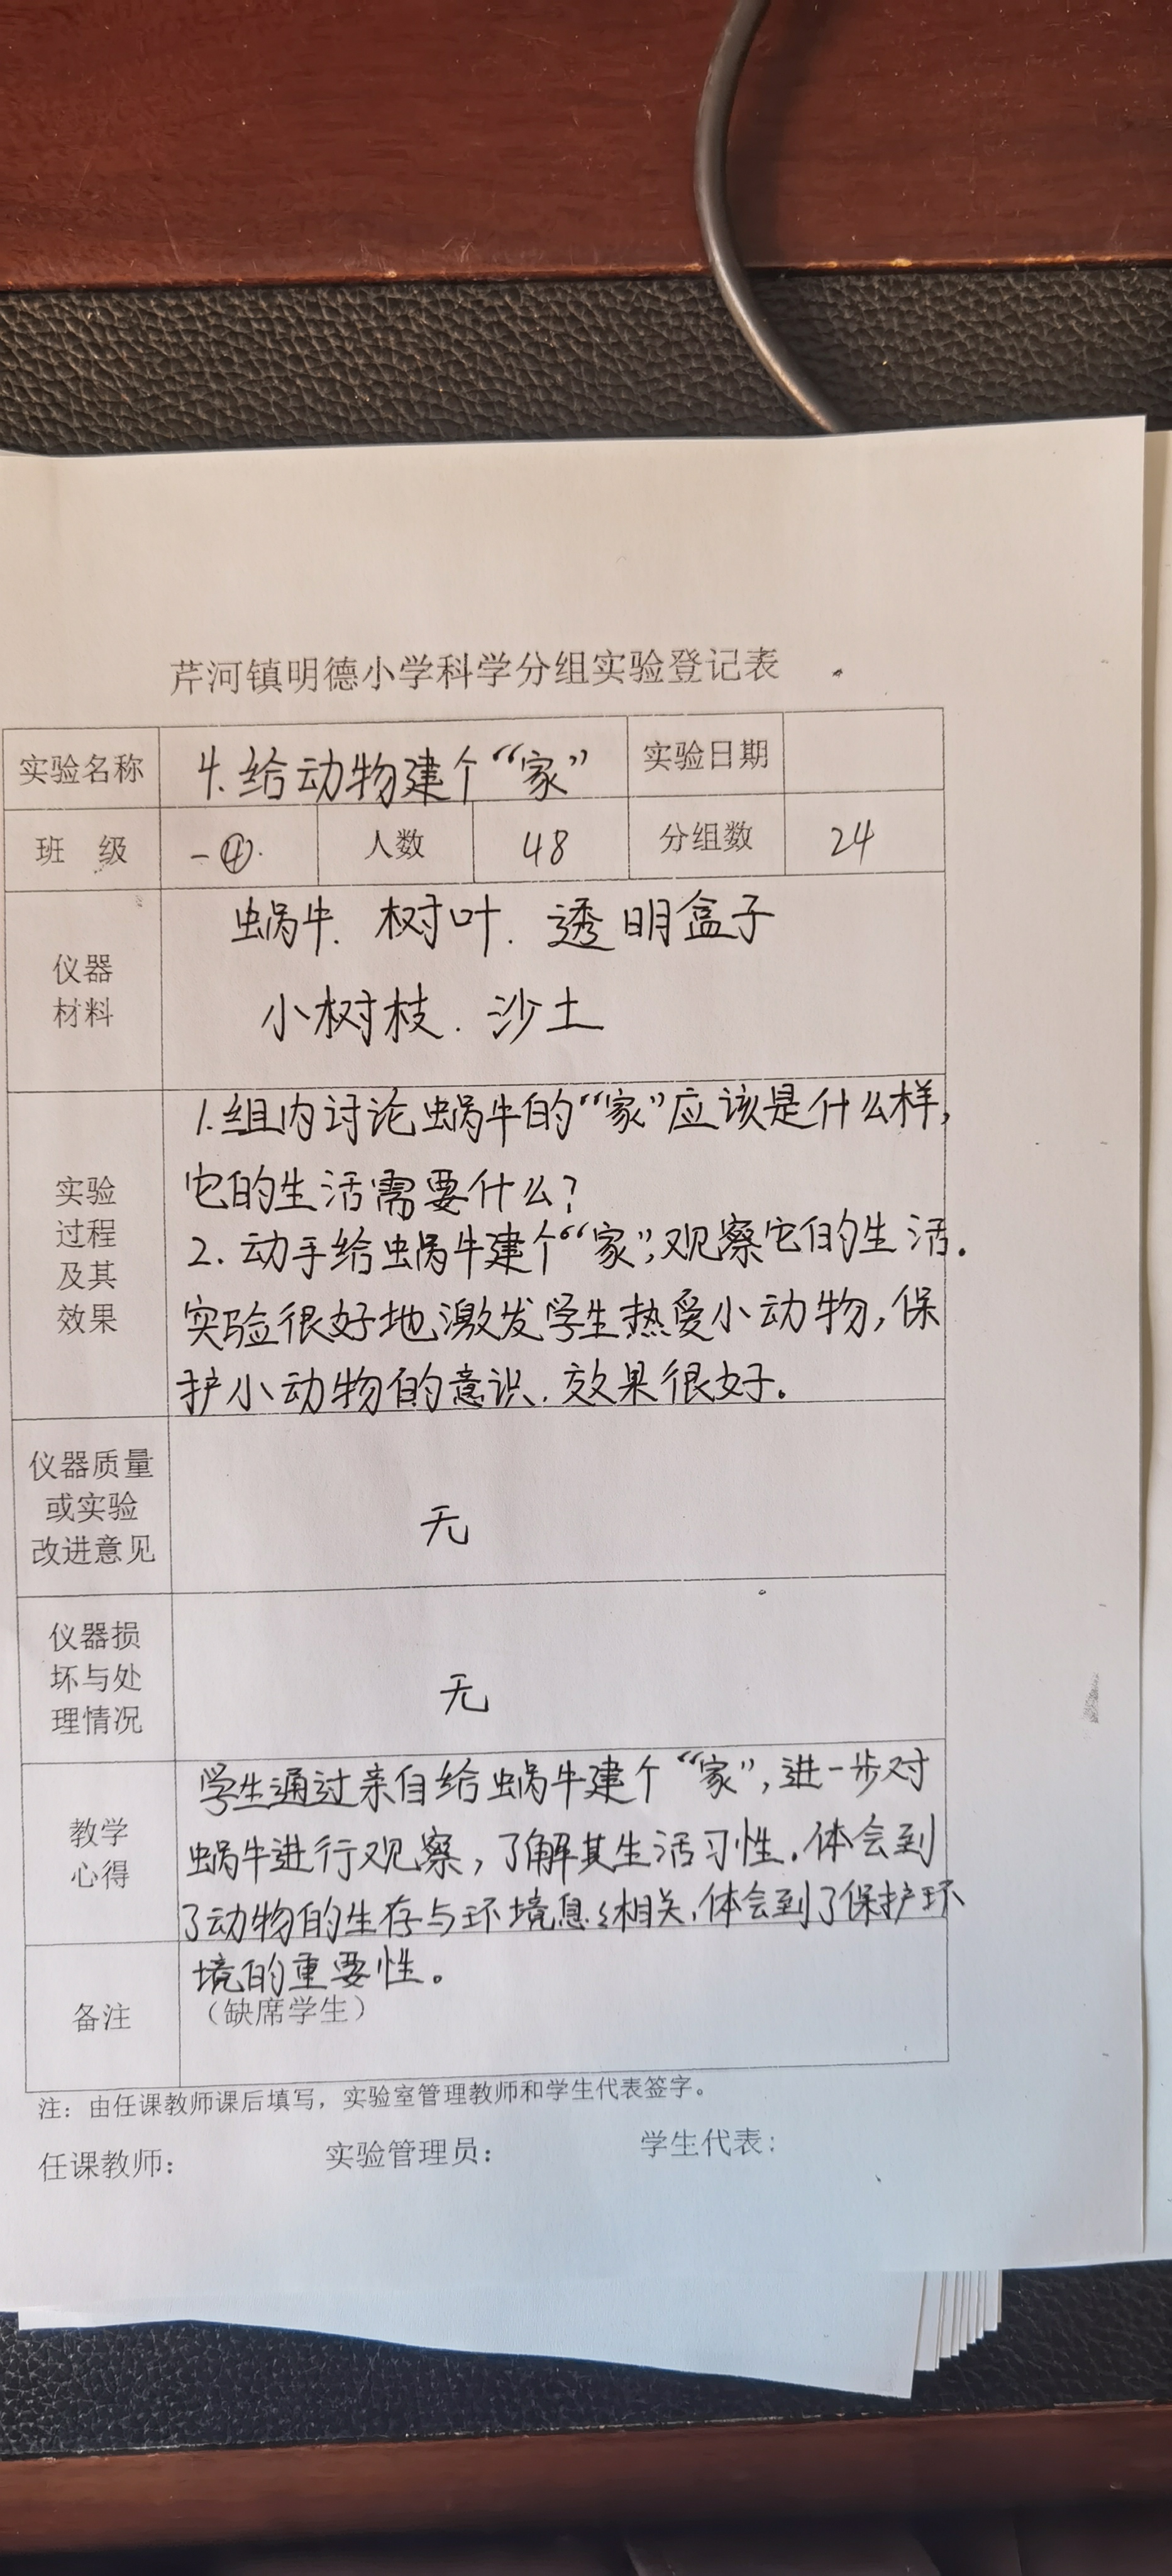 芹河镇明德小学科学分组实验登记表
实验名称 4.给动物建个“家” 实验日期
班 级 一④. 人数 48 分组数 24
仪器
材料
蜗牛. 树叶. 透明盒子
小树枝. 沙土
实验
过程
及其
效果
1.组内讨论蜗牛的“家”应该是什么样,
它的生活需要什么?
2.动手给蜗牛建个“家”,观察它们的生活.
实验很好地激发学生热爱小动物,保
护小动物的意识.效果很好.
仪器质量
或实验
改进意见
无
仪器损
坏与处
理情况
无
教学
心得
学生通过亲自给蜗牛建个“家”,进一步对
蜗牛进行观察,了解其生活习性.体会到
了动物的生存与环境息息相关,体会到了保护环
境的重要性。
备注
（缺席学生）
注：由任课教师课后填写，实验室管理教师和学生代表签字。
任课教师： 实验管理员： 学生代表：